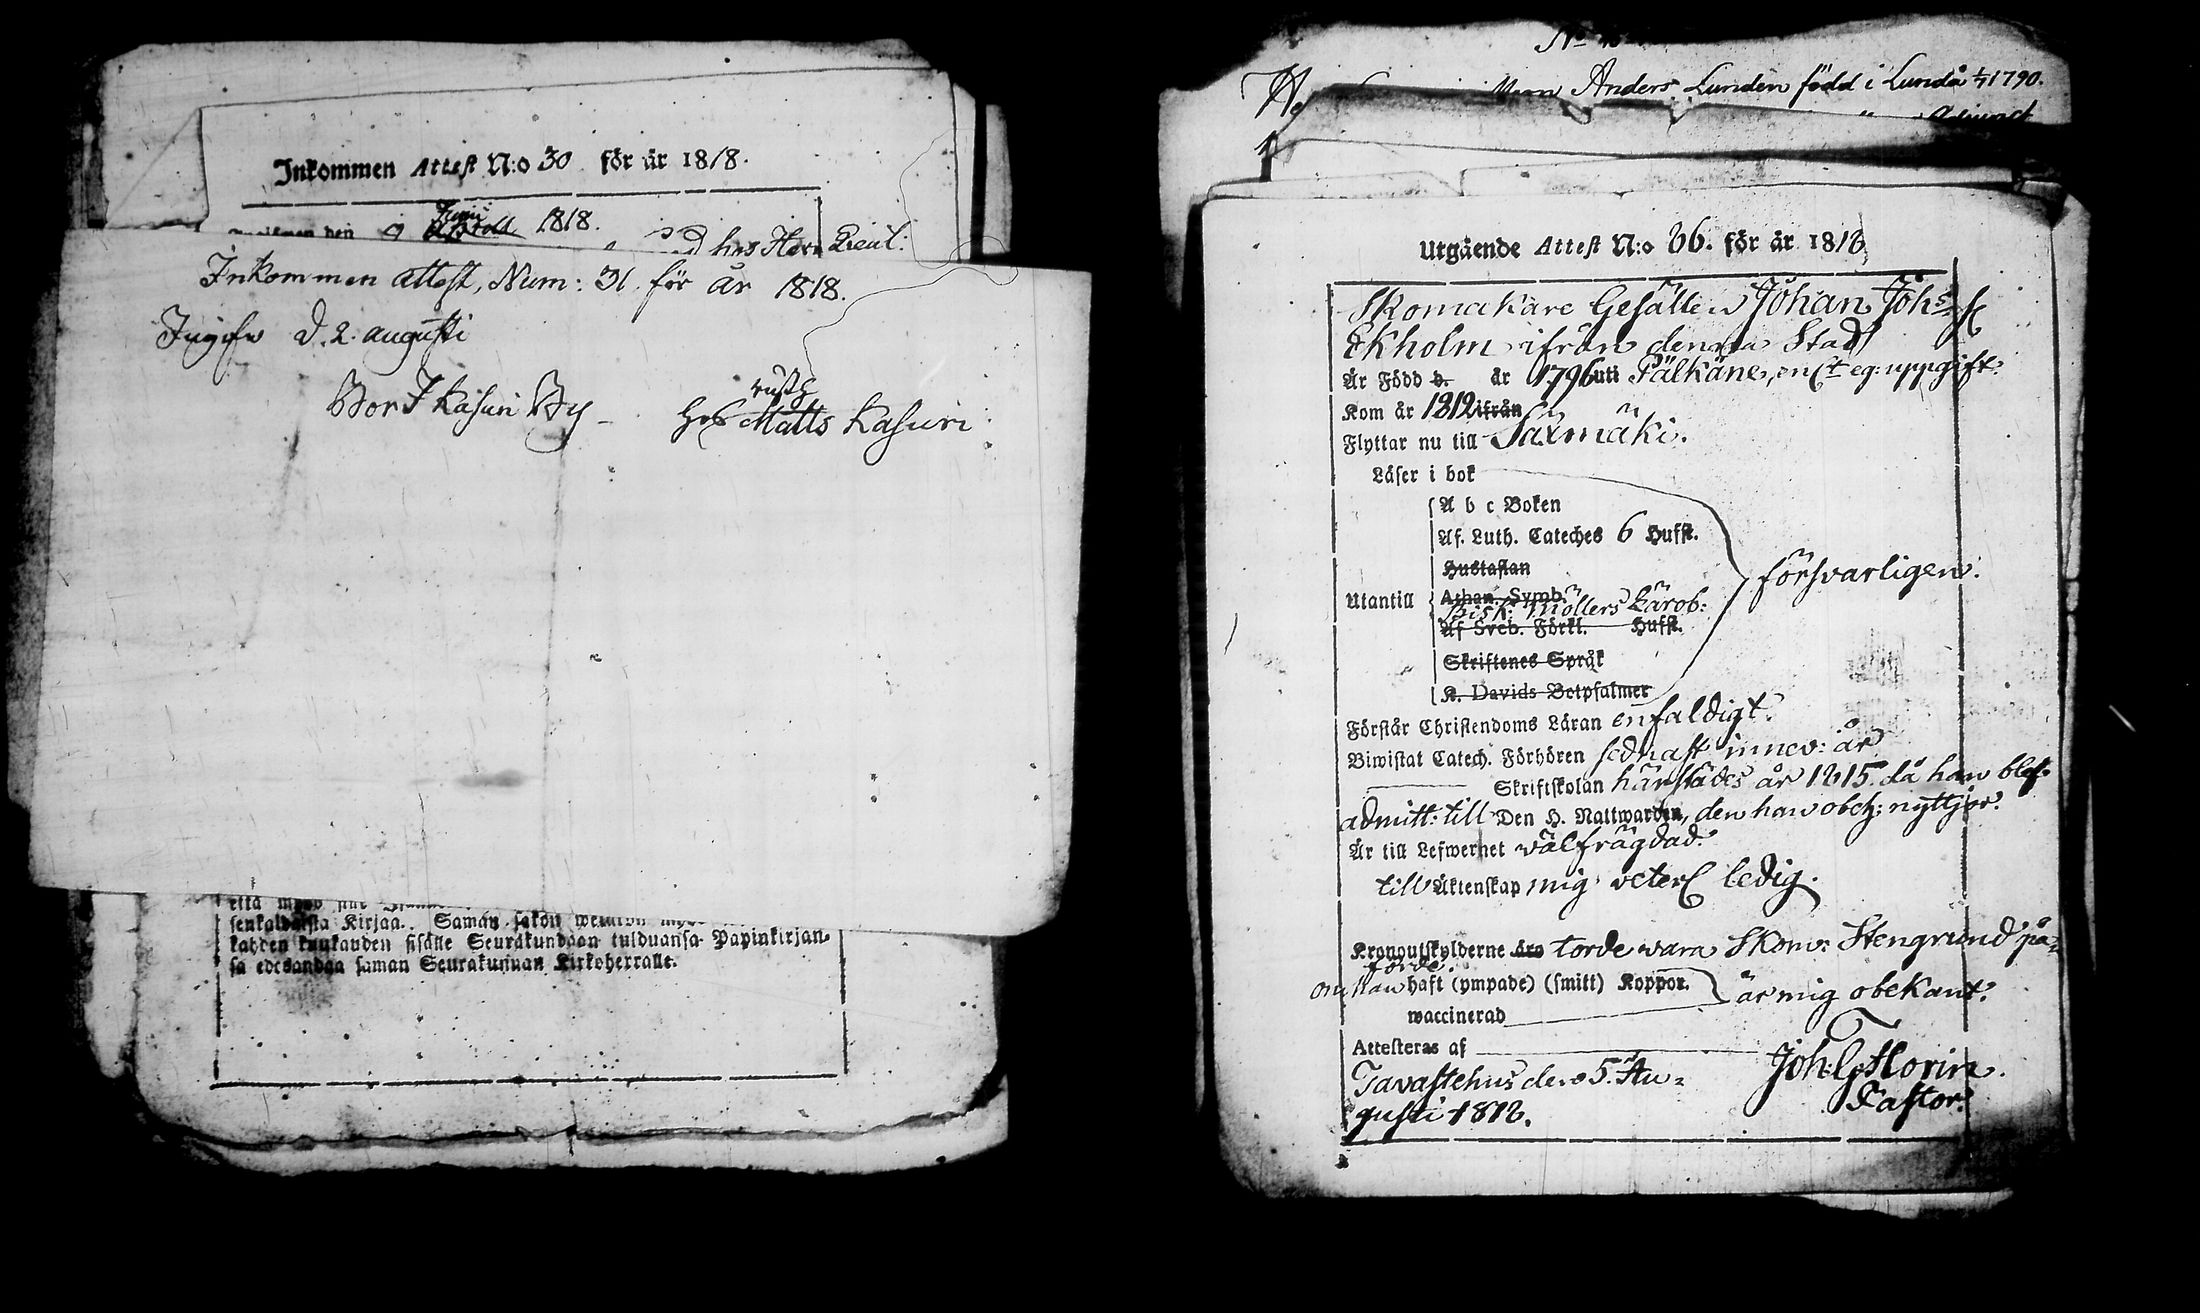 Inkommen Attest N:o 30 för år 1818.
den 9 Junii 1818.
hos Herr Lieut:
Inkommen attest, Num: 31. för år 1818.
d. 2. augusti
Bor I Kasuri By - rusth
Matts Kasuri
senkaldaista Kirjaa. Saman
kahden kuukauden sisälle Seurakundaan tulduansa Papinkirjan-
sa edesandaa saman Seurakunnan Kirkoherralle.
N:o
Anders Lunden född i Lundå 1790.
Utgående Attest N:o 66. för år 1818
Skomakare Gesällen Johan Johs
Ekholm ifrån denna Stad
År Född d. år 1796 uti Pälkäne, enl:t eg: uppgift.
Kom år 1812 ifrån
Flyttar nu till Säxmäki.
Läser i bok
A b c Boken
Af. Luth. Cateches 6 Hufst.
Hustaflan
Utantill Athan. Symb.
Bisk: Möllers Lärob: försvarligen.
Af Sveb. Förkl. Hufst.
Skriftenes Språk
K. Davids Botpsalmer
Förstår Christendoms Läran enfaldigt.
Biwistat Catech. Förhören sednast innev: år
Skriftskolan härstädes år 1815. då han blef
admitt: till Den H. Nattwarden, den han obeh: nyttjar.
Är till Lefwernet välfrägdad.
till Äktenskap mig veterl ledig.
Kronoutskylderne äro torde wara Skom: Stengrund på-
förde.
om han haft (ympade) (smitt) Koppor. är mig obekant.
waccinerad
Attesteras af
Tavastehus den 5. Au-
gusti 1818.
Joh: G. Florin.
Pastor.